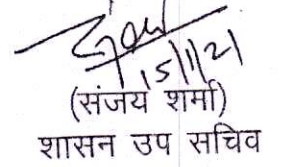 15/11/21
(संजय शर्मा)
शासन उप सचिव